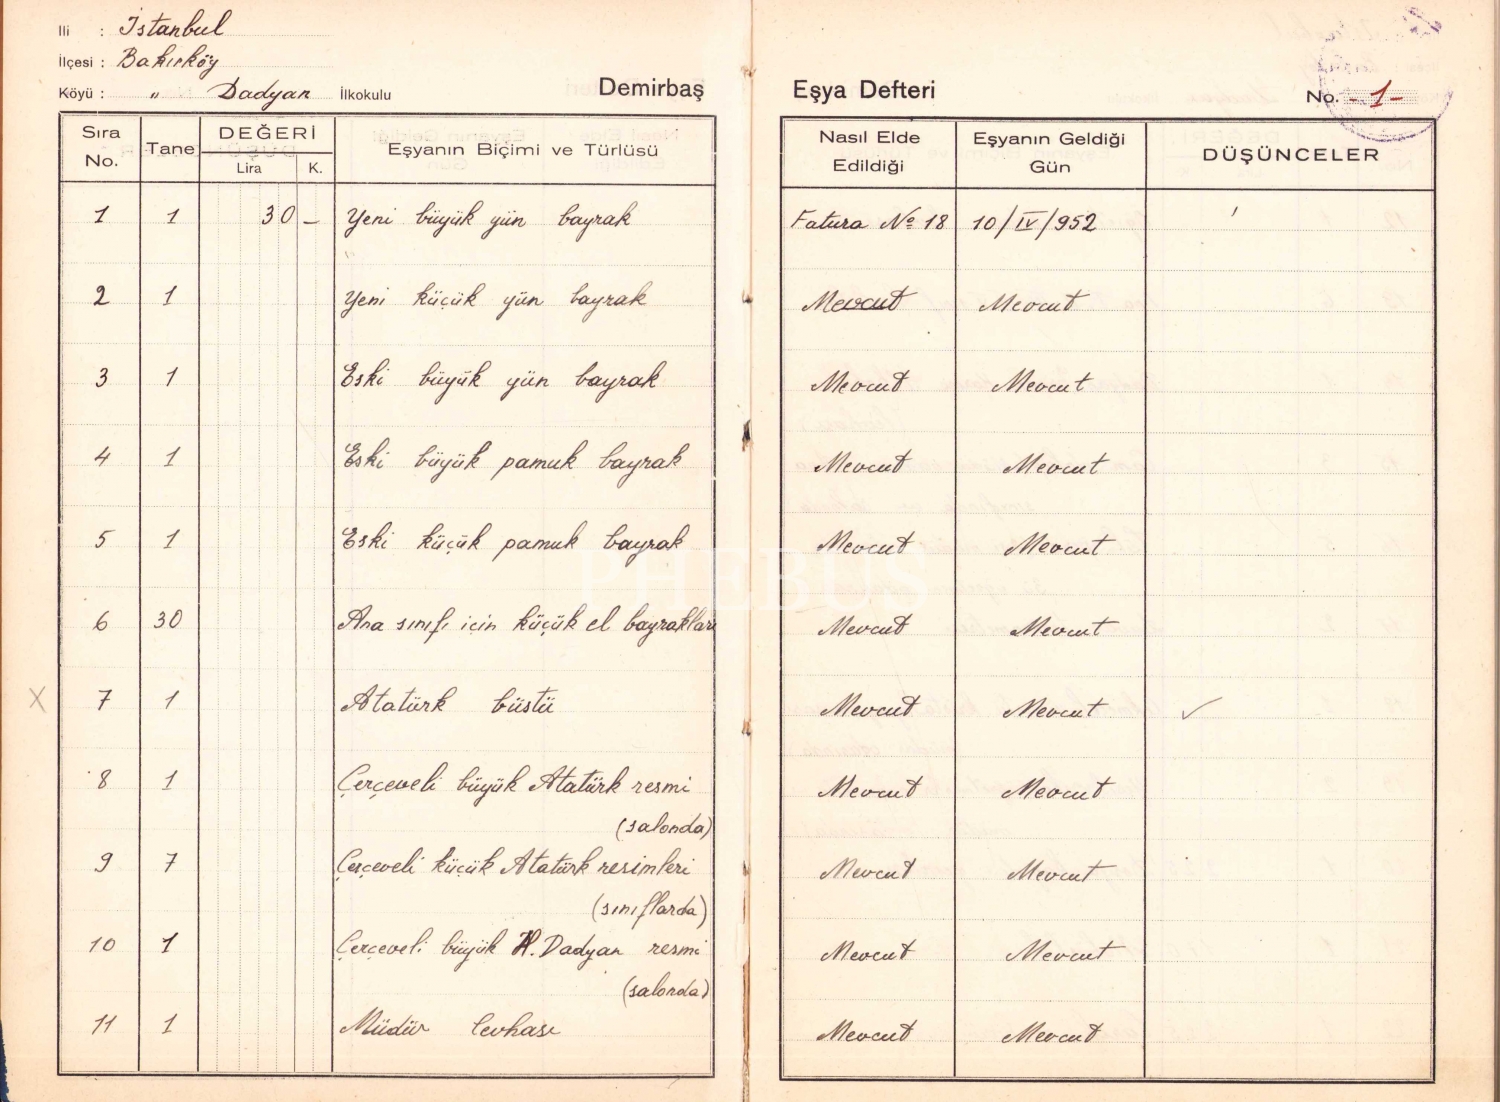 İli : İstanbul
İlçesi : Bakırköy
Köyü : " Dadyan İlkokulu
Demirbaş Eşya Defteri
No. -1-
Sıra No. Tane DEĞERİ Lira K. Eşyanın Biçimi ve Türlüsü Nasıl Elde Edildiği Eşyanın Geldiği Gün DÜŞÜNCELER
1 1 30 - Yeni büyük yün bayrak Fatura No 18 10/IV/952
2 1 Yeni küçük yün bayrak Mevcut Mevcut
3 1 Eski büyük yün bayrak Mevcut Mevcut
4 1 Eski büyük pamuk bayrak Mevcut Mevcut
5 1 Eski küçük pamuk bayrak Mevcut Mevcut
6 30 Ana sınıfı için küçük el bayrakları Mevcut Mevcut
X 7 1 Atatürk büstü Mevcut Mevcut ✓
8 1 Çerçeveli büyük Atatürk resmi Mevcut Mevcut
(salonda)
9 7 Çerçeveli küçük Atatürk resimleri Mevcut Mevcut
(sınıflarda)
10 1 Çerçeveli büyük H. Dadyan resmi Mevcut Mevcut
(salonda)
11 1 Müdür levhası Mevcut Mevcut
PHEBUS